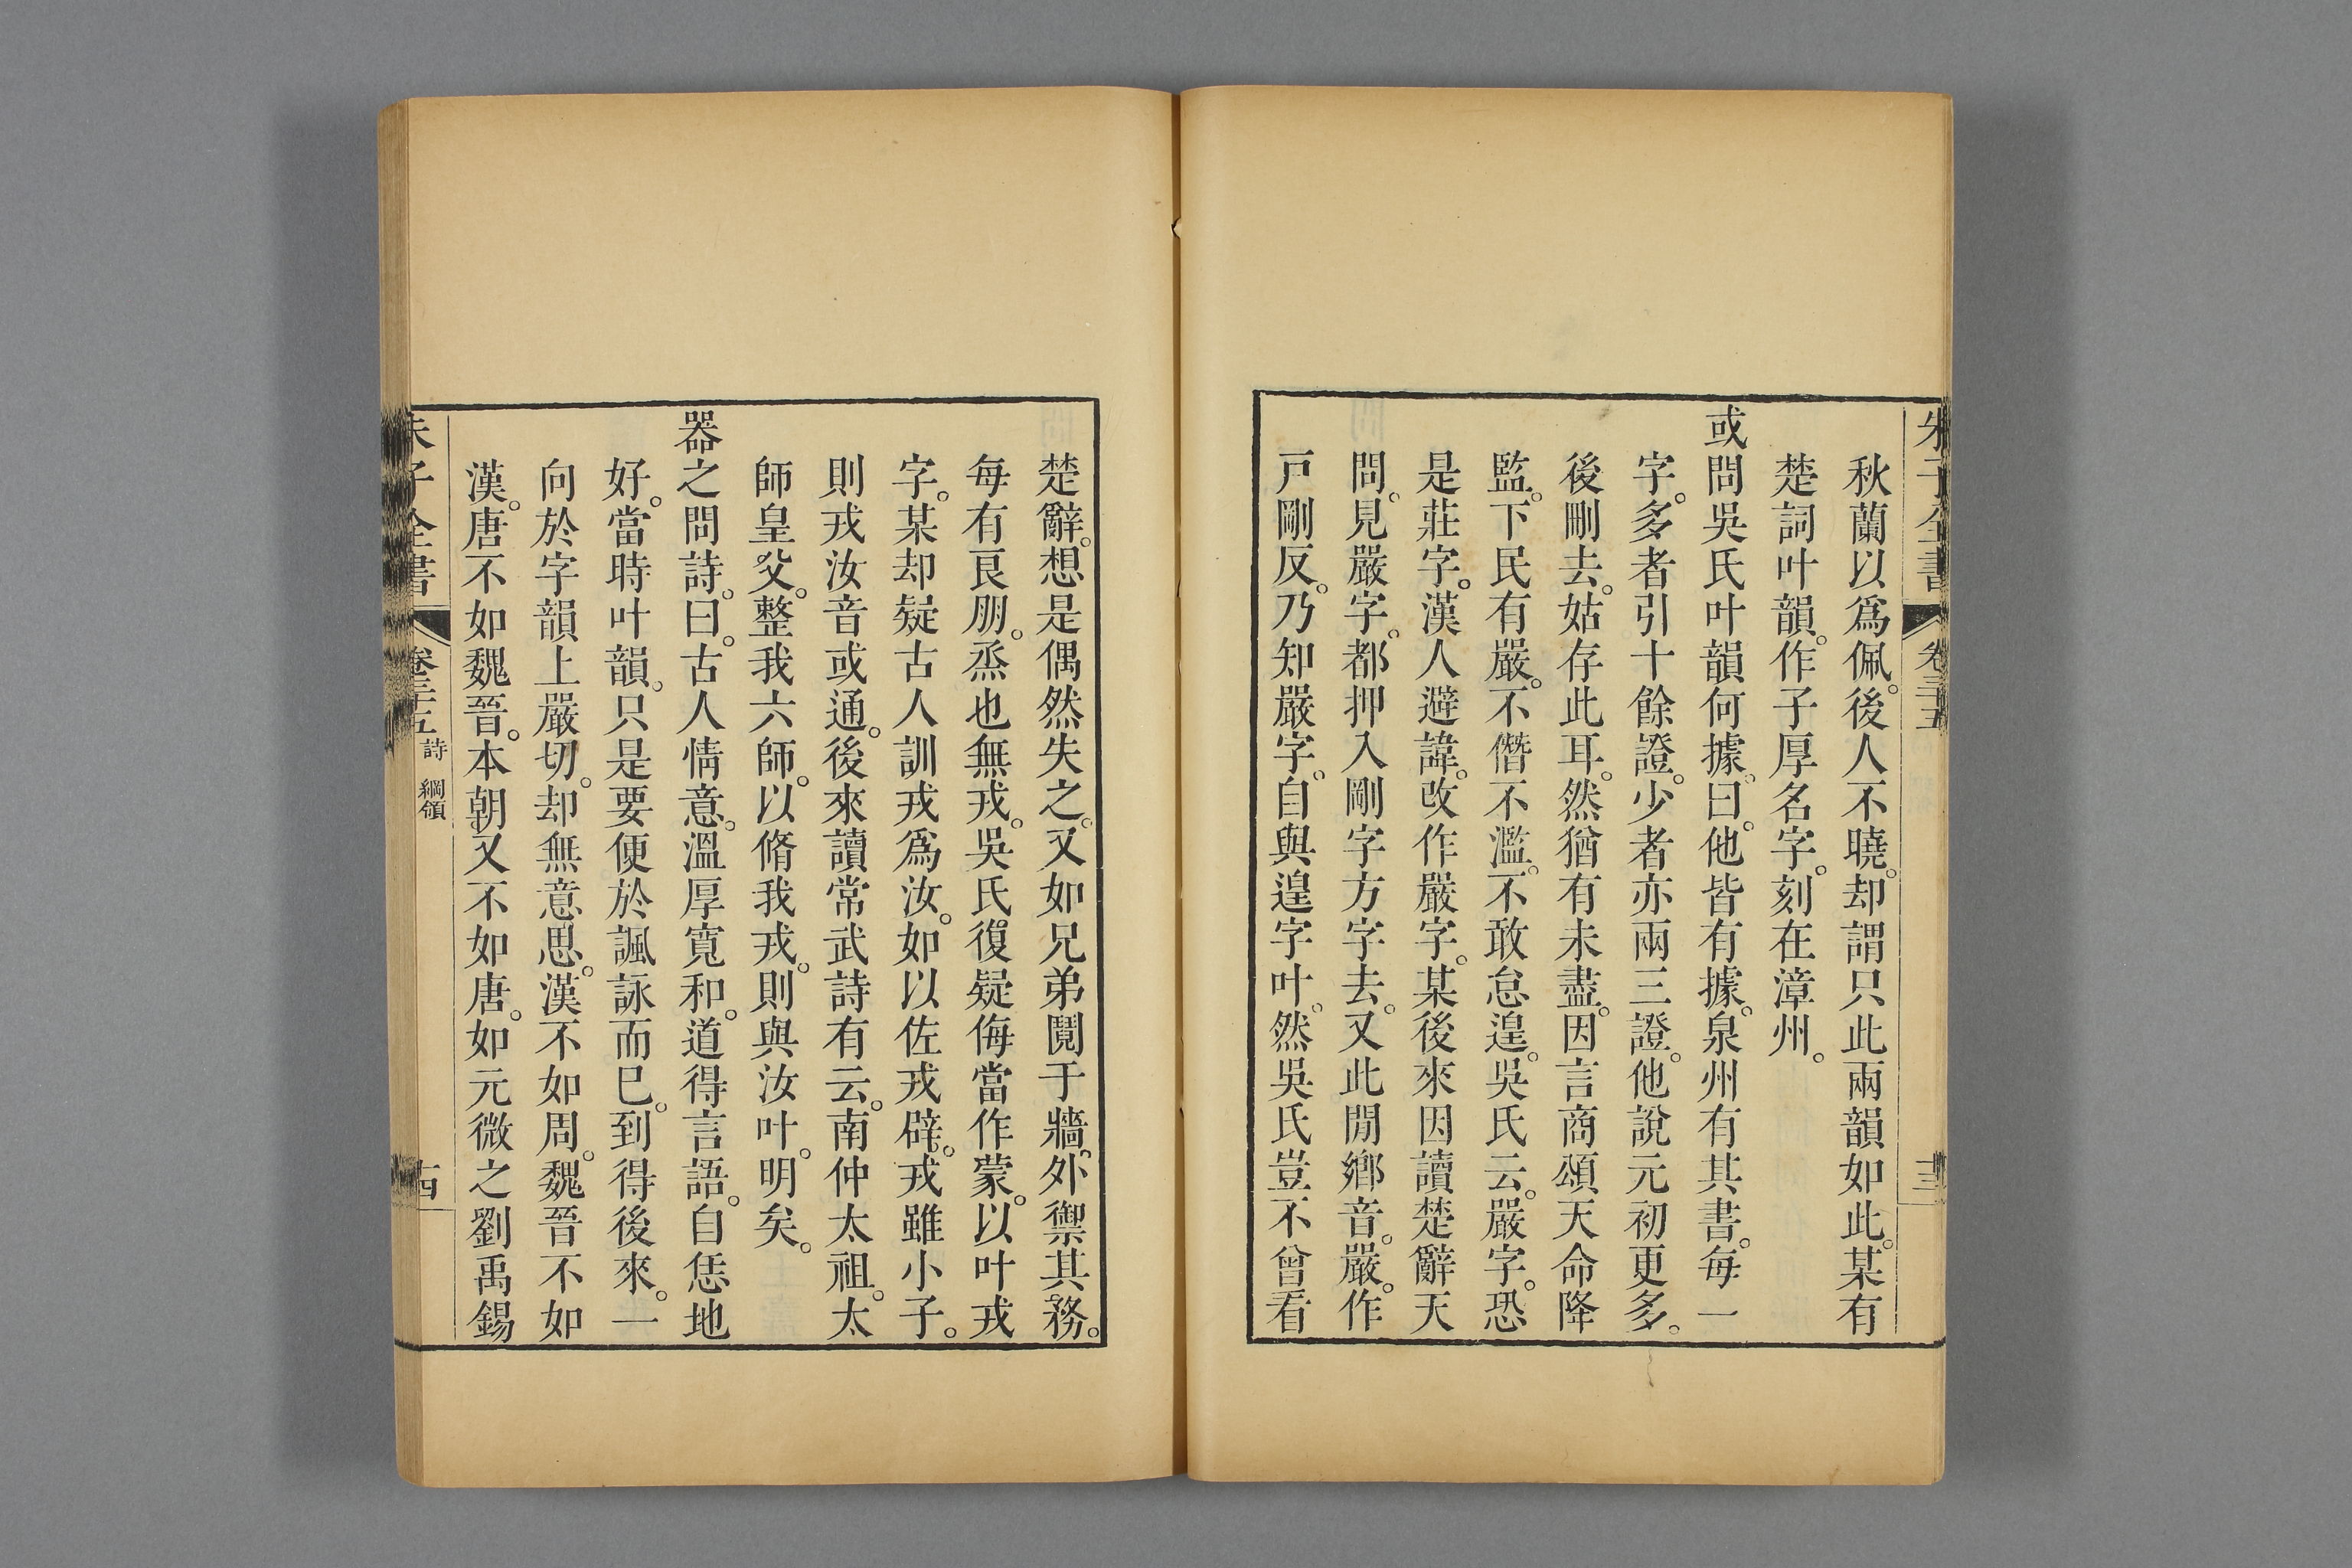 朱子全書 卷三十五 十三
秋蘭以爲佩。後人不曉。却謂只此兩韻如此。某有
楚詞叶韻。作子厚名字。刻在漳州。
或問吳氏叶韻何據。曰。他皆有據。泉州有其書。每一
字。多者引十餘證。少者亦兩三證。他說元初更多。
後刪去。姑存此耳。然猶有未盡。因言商頌天命降
監。下民有嚴。不僭不濫。不敢怠遑。吳氏云。嚴字。恐
是莊字。漢人避諱。改作嚴字。某後來因讀楚辭天
問。見嚴字。都押入剛字方字去。又此閒鄉音。嚴。作
戸剛反。乃知嚴字。自與遑字叶。然吳氏豈不曾看
楚辭。想是偶然失之。又如兄弟鬩于牆。外禦其務。
每有良朋。烝也無戎。吳氏復疑侮當作蒙。以叶戎
字。某却疑古人訓戎爲汝。如以佐戎辟。戎雖小子。
則戎汝音或通。後來讀常武詩有云。南仲太祖。太
師皇父。整我六師。以脩我戎。則與汝叶。明矣。
器之問詩。曰。古人情意。溫厚寬和。道得言語。自恁地
好。當時叶韻。只是要便於諷詠而已。到得後來。一
向於字韻上嚴切。却無意思。漢不如周。魏晉不如
漢。唐不如魏晉。本朝又不如唐。如元微之劉禹錫
朱子全書 卷三十五 詩 綱領 十四